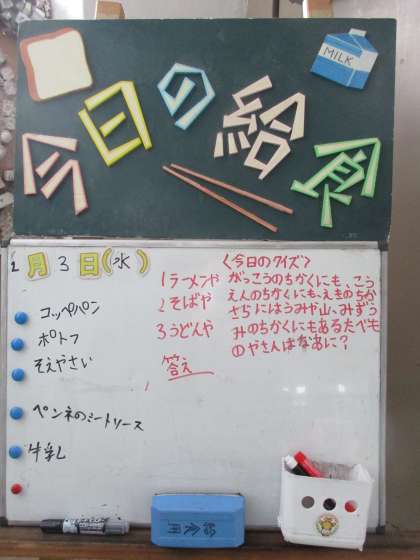 MILK
今日の給食
2月3日(水)
コッペパン
ポトフ
そえやさい
ペンネのミートソース
牛乳
〈今日のクイズ〉
がっこうのちかくにも、こう
えんのちかくにも、えきのちか
さらにはうみや山、みずう
みのちかくにもあるたべも
のやさんはなあに?
1ラーメンや
2そばや
3うどんや
答え